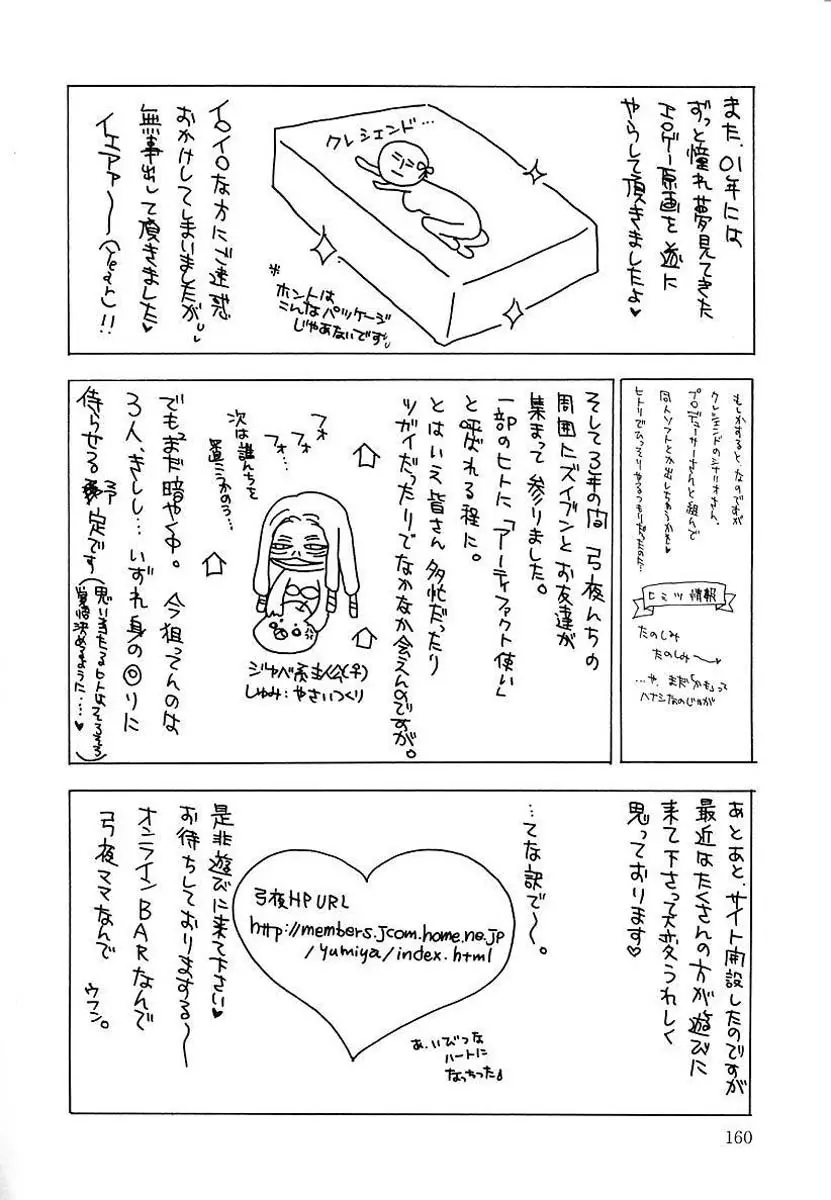 また、01年には
ずっと憧れ夢見てきた
エロゲー原画を遂に
やらして頂きましたよ♥
クレシェンド…
※ホントは
こんなパッケージ
じゃあないです
イロイロな方にご迷惑
おかけしてしまいましたが、
無事出して頂きました♥
イェアァ〜〜(Year)!!
もしかすると、なのですが
クレシェンドのシナリオさん、
プロデューサーさんと組んで
同人ソフトとか出しちゃうかも♥
ヒトリでひっそりやるつもりだったのに…
ヒミツ情報
たのしみ
たのしみ〜
…や、まだ「かも」って
ハナシなのじゃが
そして3年の間 弓夜んちの
周囲にズイブンとお友達が
集まって参りました。
一部のヒトに「アーティファクト使い」
と呼ばれる程に。
とはいえ皆さん多忙だったり
ツガイだったりでなかなか会えんのですが。
フォ…
フォ…
次は誰んちを
置こうかのう…
ジャベ系主人公(♀)
しゅみ:やさいつくり
でもまだ暗や中。今狙ってんのは
3人、きしし…いずれ身の回りに
侍らせる予定です
(思い当たるヒトはそろそろ
覚悟決めるように…♥)
あとあと、サイト開設したのですが
最近はたくさんの方が遊びに
来て下さって大変うれしく
思っております♥
…てな訳で〜。
弓夜HP URL
http://members.jcom.home.ne.jp
/yumiya/index.html
あ、いびつな
ハートに
なっちった
是非遊びに来て下さい♥
お待ちしておりまする〜
オンラインBARなんで
弓夜ママなんで
ウフン。
160